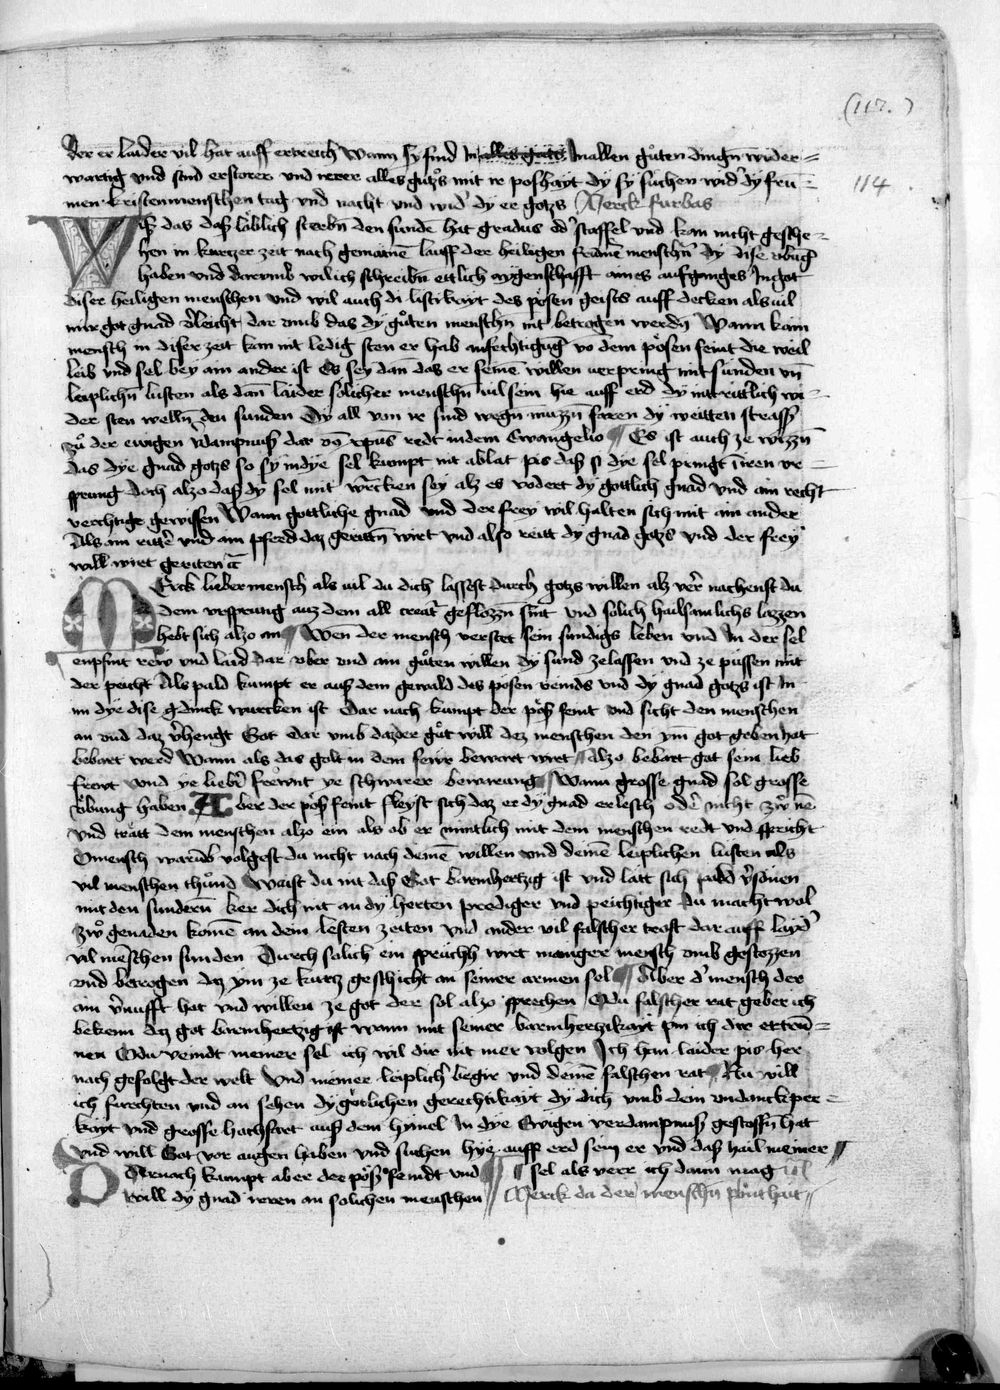 (117.)
114
der er laider vil hat auff ertreich Wann sy sind in alles gutts Inallen gůten dingn wider=
wartig vnd sind erstorer vnd irrer alles gutzs mit ir poshayt dy sy suchen wid' dy fru=
men kristenmenschen tag vnd nacht vnd wid' dy er gotzs Merck furbas
Wiß das daß loblich sterbn den sunden hat gradus od' staffel vnd kan nicht gesche=
hen in kurtzer zeit nach gemainē lauff der heiligen frumē menschn dy dise vbūg
haben vnd darumb wil ich schreibn ettlich aygenschafft aines aufganges In got
diser heiligen menschen vnd wil auch di listikayt des pösen geists auff decken als vil
mir got gnad v'leicht dar vmb das dy gůten menschn nit betrogen werdn Wann kain
mensch in diser zeit kan nit ledig sten er hab anfechtigūg vō dem pösen feint die weil
leib vnd sel bey ain ander ist Es sey dan das er seinē willen verpring mit sunden vn̄
leiplichn lusten als dan laider solicher menschn vil sein hie auff erd dy nit rittlich wi=
der sten welln den sunden Dy all von ir sind wegn muzzn faren dy weitten strass
zů der ewigen vdampnuß dar vō xpus redt in dem Ewangelio ¶ Es ist auch ze wizzn
das dye gnad gotzs so sy in dye sel kumpt nit ablat pis daß si dye sel pringt in iren vr=
sprung doch alzo daß dy sel mit wrcken sey alz es vodert dy gottlich gnad vnd ain recht
verchtige gewissen Wann gottliche gnad vnd der frey wil halten sich mit ain ander
Als ain ritter vnd ain pferd daz geritn wirt vnd also reitt dy gnad gotzs vnd der frey
will wirt geriten
Merck lieber mensch als vil du dich lassest durch gotz willen alz ver nachenst du
dem vrsprung auz dem all creat' geflozzn sint vnd solich hailsamlichs lazzen
hebt sich alzo an ¶ Wen der mensch verstet sein sundigs leben vnd In der sel
enpfint rew vnd laid dar vber vnd ain gůten willen dy sund ze lassen vnd ze püssen mit
der peicht Als pald kumpt er auß dem gewald des posen veinds vnd dy gnad gotzs ist In
im dye dise gdinck wurcken ist Dar nach kumpt der pös feint vnd sicht den menschen
an vnd daz v'hengt Got dar vmb daz der gůt will dez menschen den ym got geben hat
bebart werd Wann als das golt in dem feẅr bewart wirt ¶ Alzo bebart got sein lieb
frewt vnd ye lieber frewnt ye schwarer bewarung ¶ Wann grosse gnad sol grosse
vbung haben Aber der pöß feint fleyst sich daz er dy gnad erlesch oder nicht zw nē
vnd tratt dem menschen alzo ein als ob er mintlich mit dem menschen redt vnd spricht
O mensch warūb volgest du nicht nach deinē willen vnd deinē leiplichen lusten als
vil menschen thuond Waist du nit daß Got barmhertzig ist vnd latt sich pald v'sonen
mit den sundern ker dich nit an dy herten prediger vnd peichtiger du macht wol
zẅ genaden komē an dein lesten zeiten vnd ander vil falscher trost dar auff layd'
vil menschen sunden Durch solich ein spruchh wirt mainger mensch vmb gestozzen
vnd betrogen daz ym ze kurtz geschicht an seiner armen sel ¶ Aber d' mensch der
ain v'nufft hat vnd willen ze got der sol alzo sprechen O du falscher rat geber ich
bekenn daz got barmhertzig ist wann mit seiner barmhertzikayt pin ich dir ettrun=
nen O du veindt meiner sel ich wil dir nit mer volgen Ich han laider pis her
nach gefolgt der welt vnd meiner leiplich begir vnd deinē falschen rat ¶ Nu will
ich furchten vnd an sehen dy gotlichen gerechtikayt dy dich vmb dein vndanckper=
kayt vnd grosse hachfart auß dem hymel In dye Ewigen verdampnuß gestossn hat
vnd will Got vor augen haben vnd suchen hye auff erd sein er vnd daß hail meiner
Darnach kumpt aber der pöß feindt vnd ¶ ¶ sel als verr ich dann mag
will dy gnad irren an solichen menschen Merck da der menschn